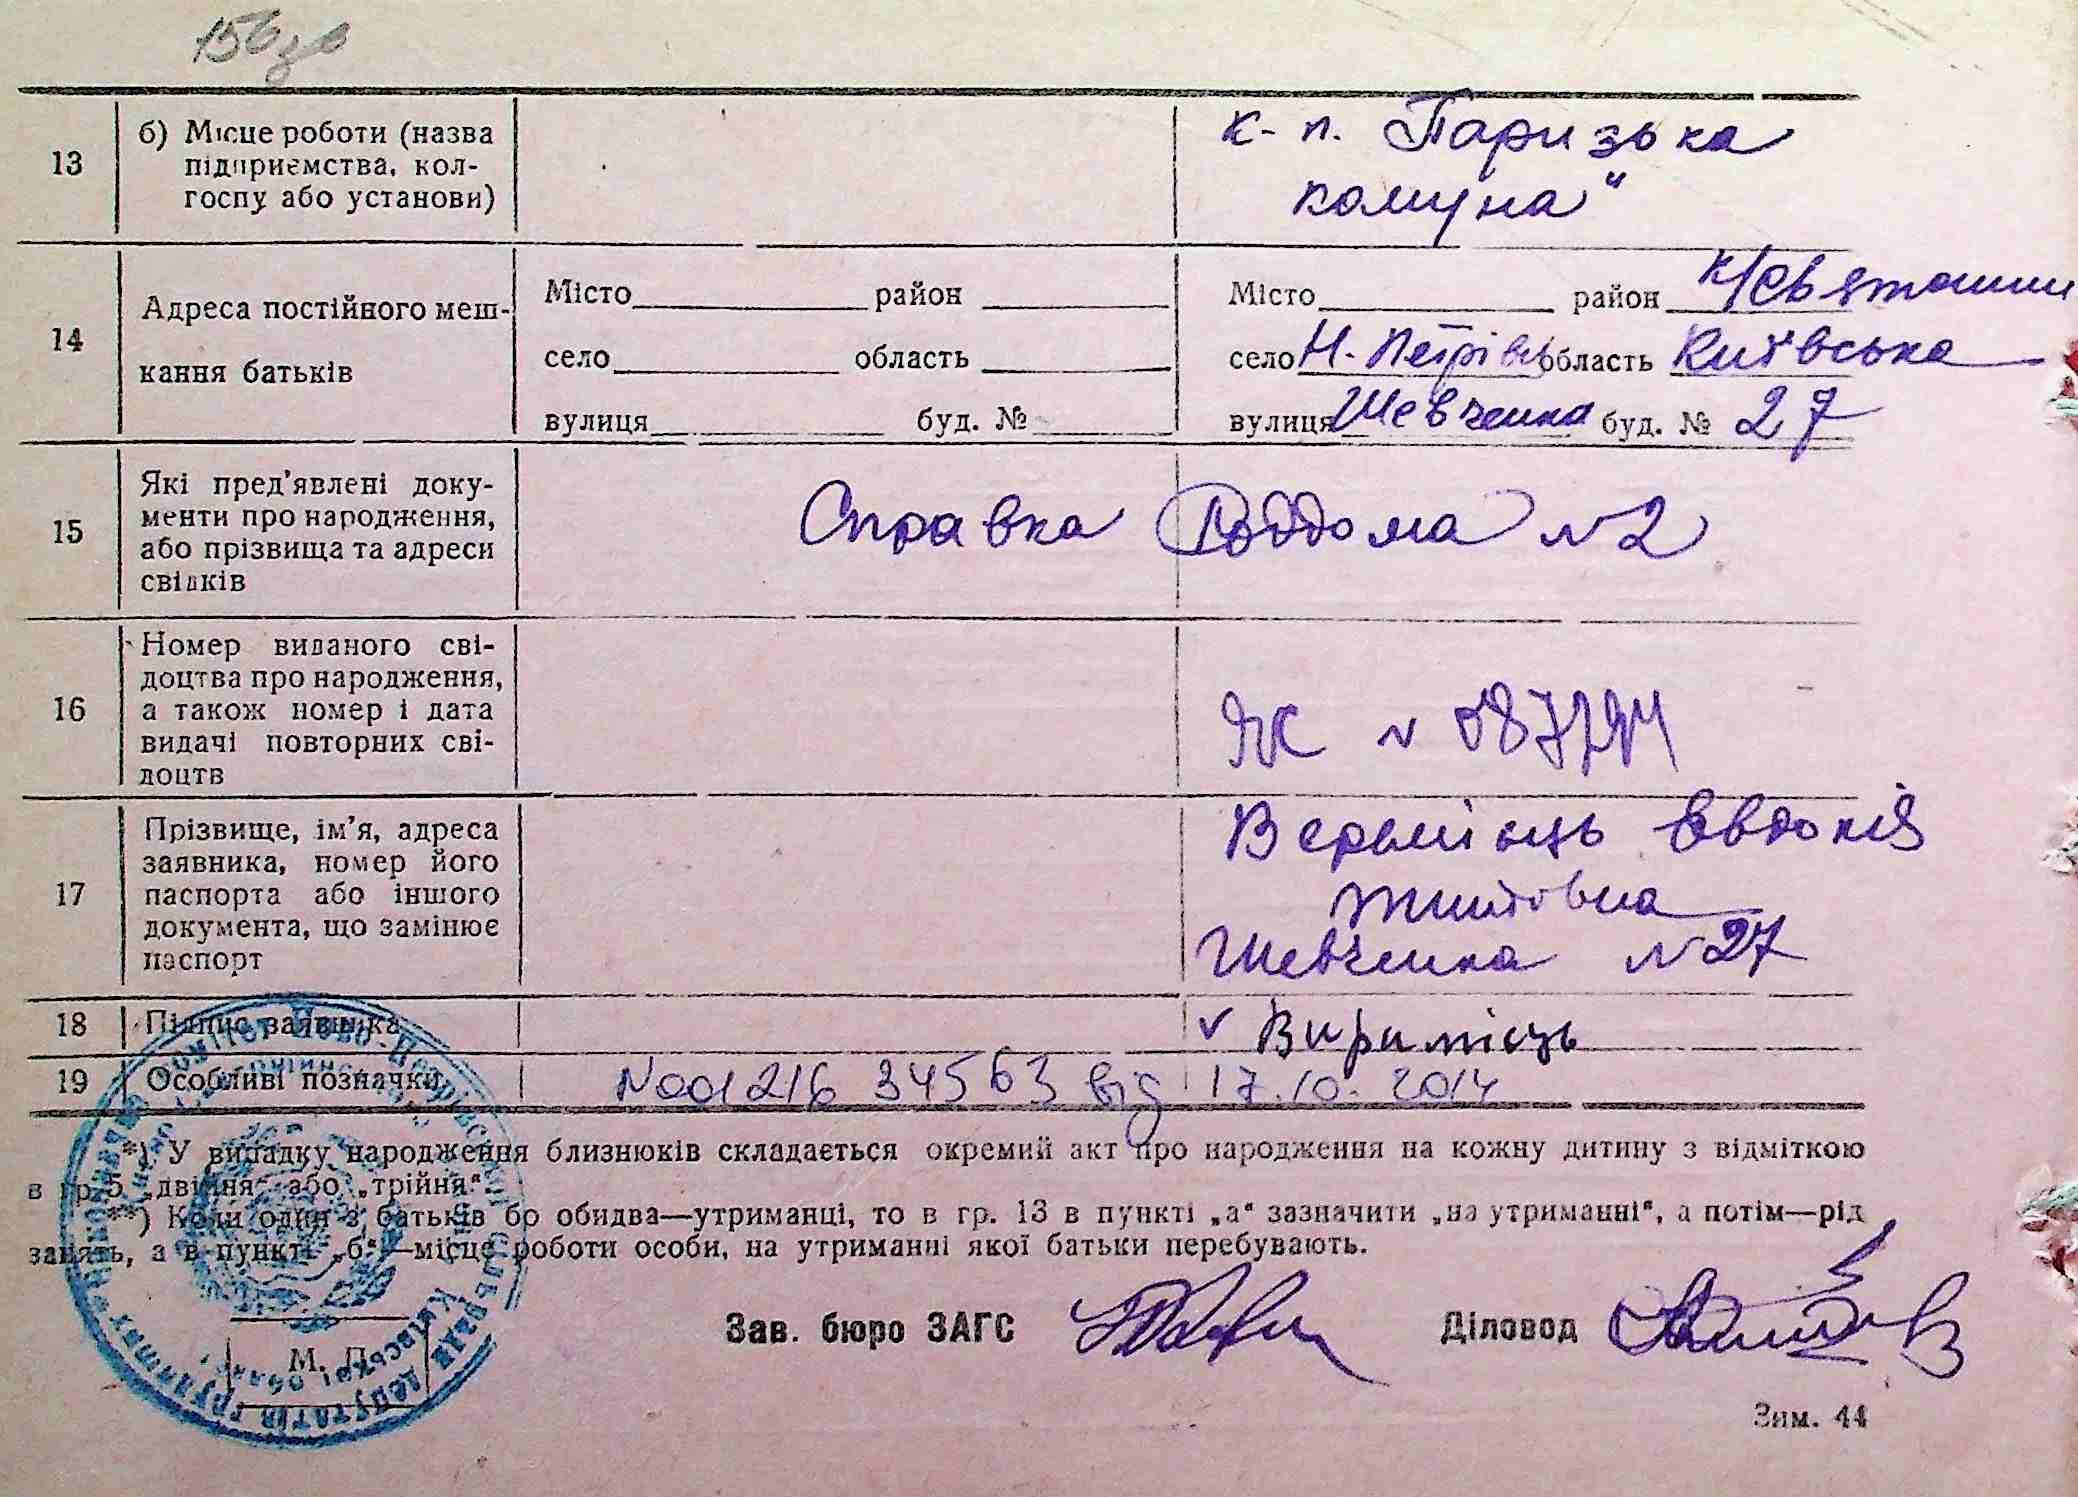 156 зв
13
б) Місце роботи (назва
підприємства, кол-
госпу або установи)
к-п. „Паризька
комуна“
14
Адреса постійного меш-
кання батьків
Місто район
село область
вулиця буд. №
Місто район К/Святошин
село Н-Петрівці область Київська
вулиця Шевченка буд. № 27
15
Які пред'явлені доку-
менти про народження,
або прізвища та адреси
свідків
Справка Роддома №2
16
Номер виданого сві-
доцтва про народження,
а також номер і дата
видачі повторних сві-
доцтв
ЯК №
17
Прізвище, ім'я, адреса
заявника, номер його
паспорта або іншого
документа, що замінює
паспорт
Евдокія
Шевченка №27
18
Підпис заявника
19
Особливі позначки
N00121634563 від 17.10.2014
*) У випадку народження близнюків складається окремий акт про народження на кожну дитину з відміткою
в гр. 5 „двійня“ або „трійня“.
**) Коли один з батьків бо обидва—утриманці, то в гр. 13 в пункті „а“ зазначити „на утриманні“, а потім—рід
занять, а в пункті „б“—місце роботи особи, на утриманні якої батьки перебувають.
Зав. бюро ЗАГС
Діловод
М. П.
Зим. 44